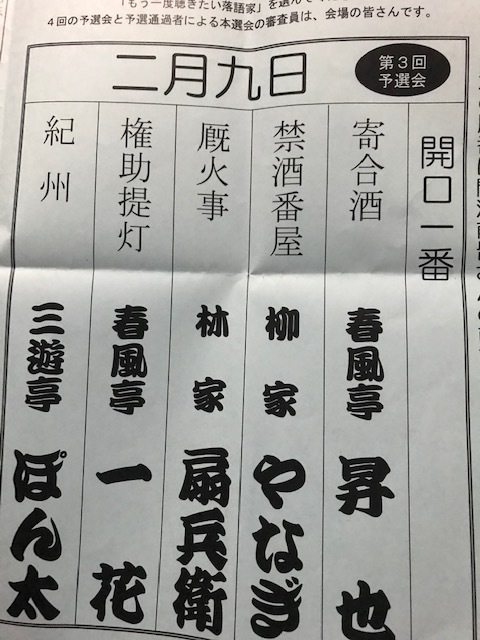 「もう一度聴きたい落語家」を選んで
4回の予選会と予選通過者による本選会の審査員は、会場の皆さんです。
第3回
予選会
二月九日
開口一番
寄合酒 春風亭 昇也
禁酒番屋 柳家 やなぎ
厩火事 林家 扇兵衛
権助提灯 春風亭 一花
紀州 三遊亭 ぽん太